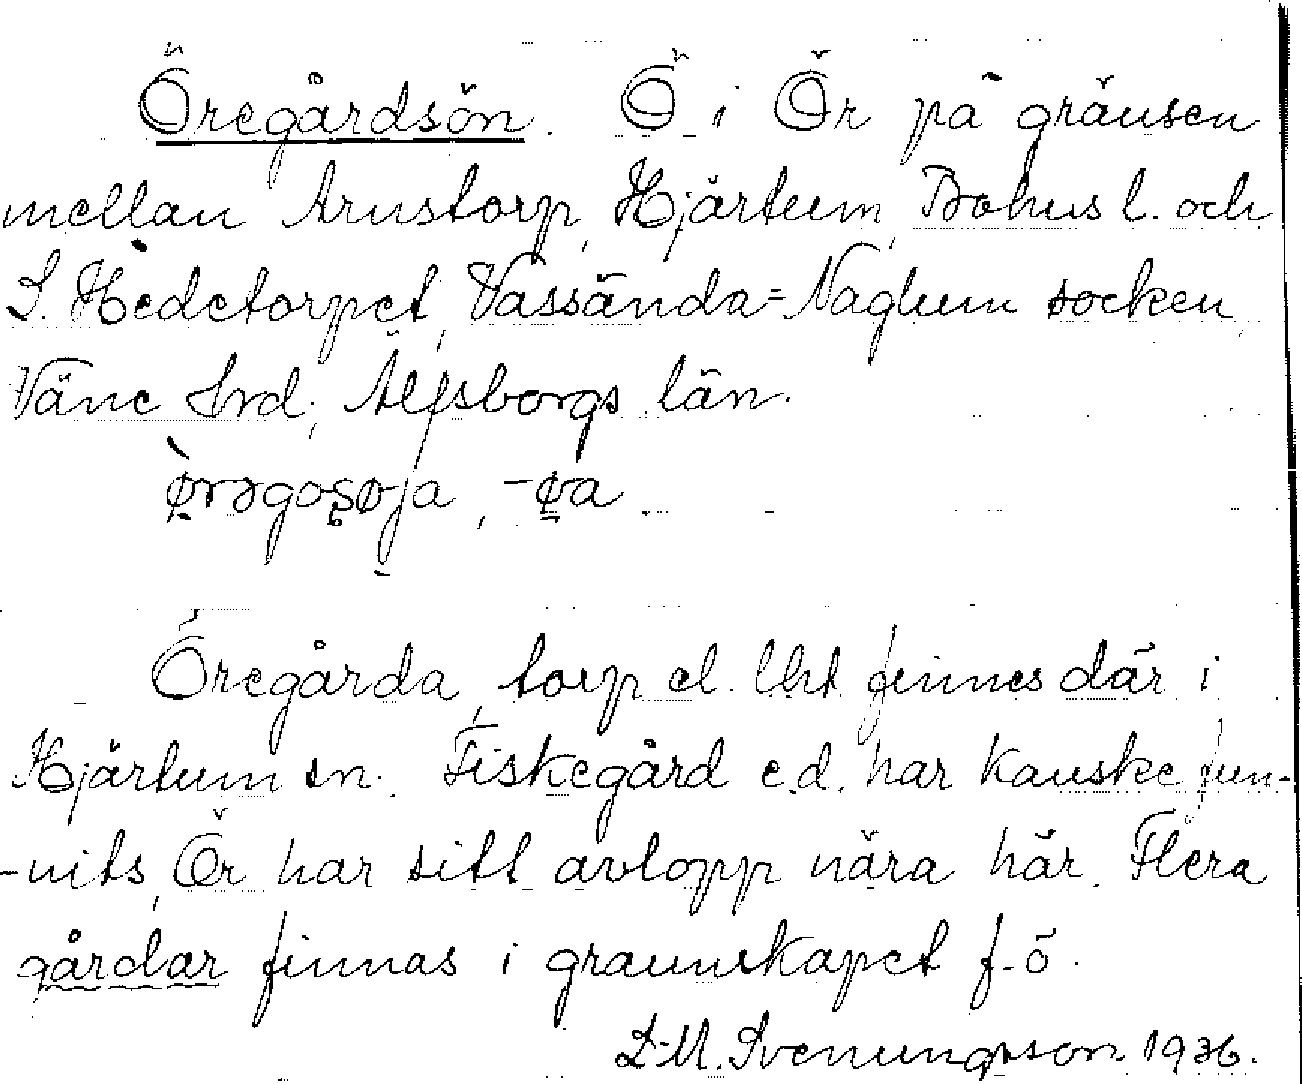 Öregårdsön. Ö i Ör på gränsen
mellan Arnstorp, Hjärtum, Bohus l. och
S. Hedetorpet, Vassända-Naglum socken,
Väne hrd, Älfsborgs län.
ø̀rəgoʂøja, -øa
Öregårda, torp el. lht finnes där i
Hjärtum sn. Fiskegård e.d. har kanske fun-
-nits, Ör har sitt avlopp nära här. Flera
gårdar finnas i grannskapet f.ö.
S. M. Svenungsson 1936.